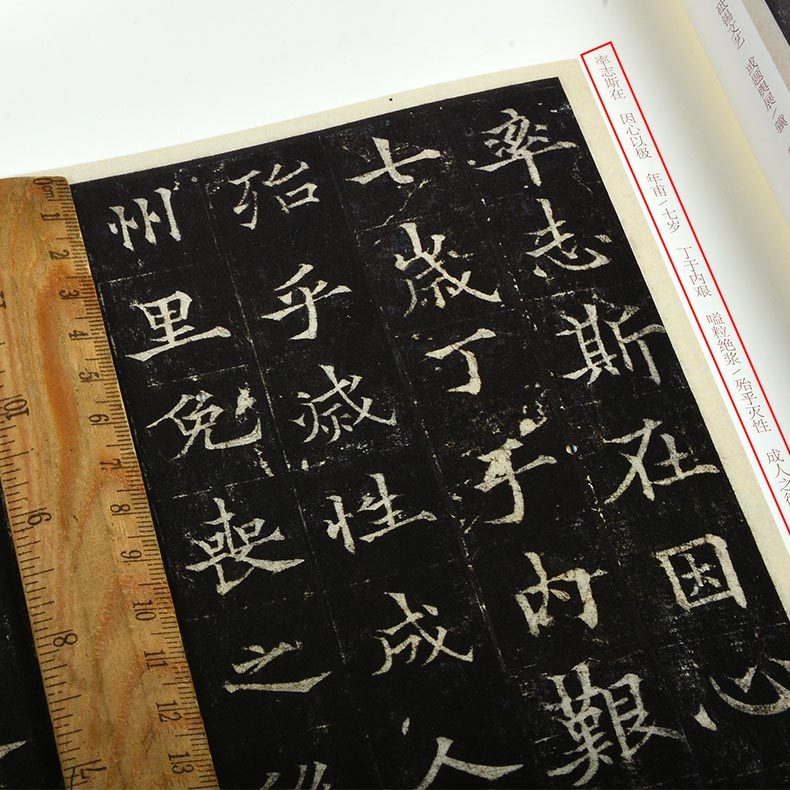 锡文艺 或题舆展/骥
率志斯在 因心以极 年甫/七岁 丁于内艰 嗌粒绝浆/殆乎灭性 成人之
率志斯在因心
七歲丁于内艱
殆乎滅性成人
州里免喪之
0cm 1 2 3 4 5 6 7 8 9 10 11 12 13
10 9 8 7